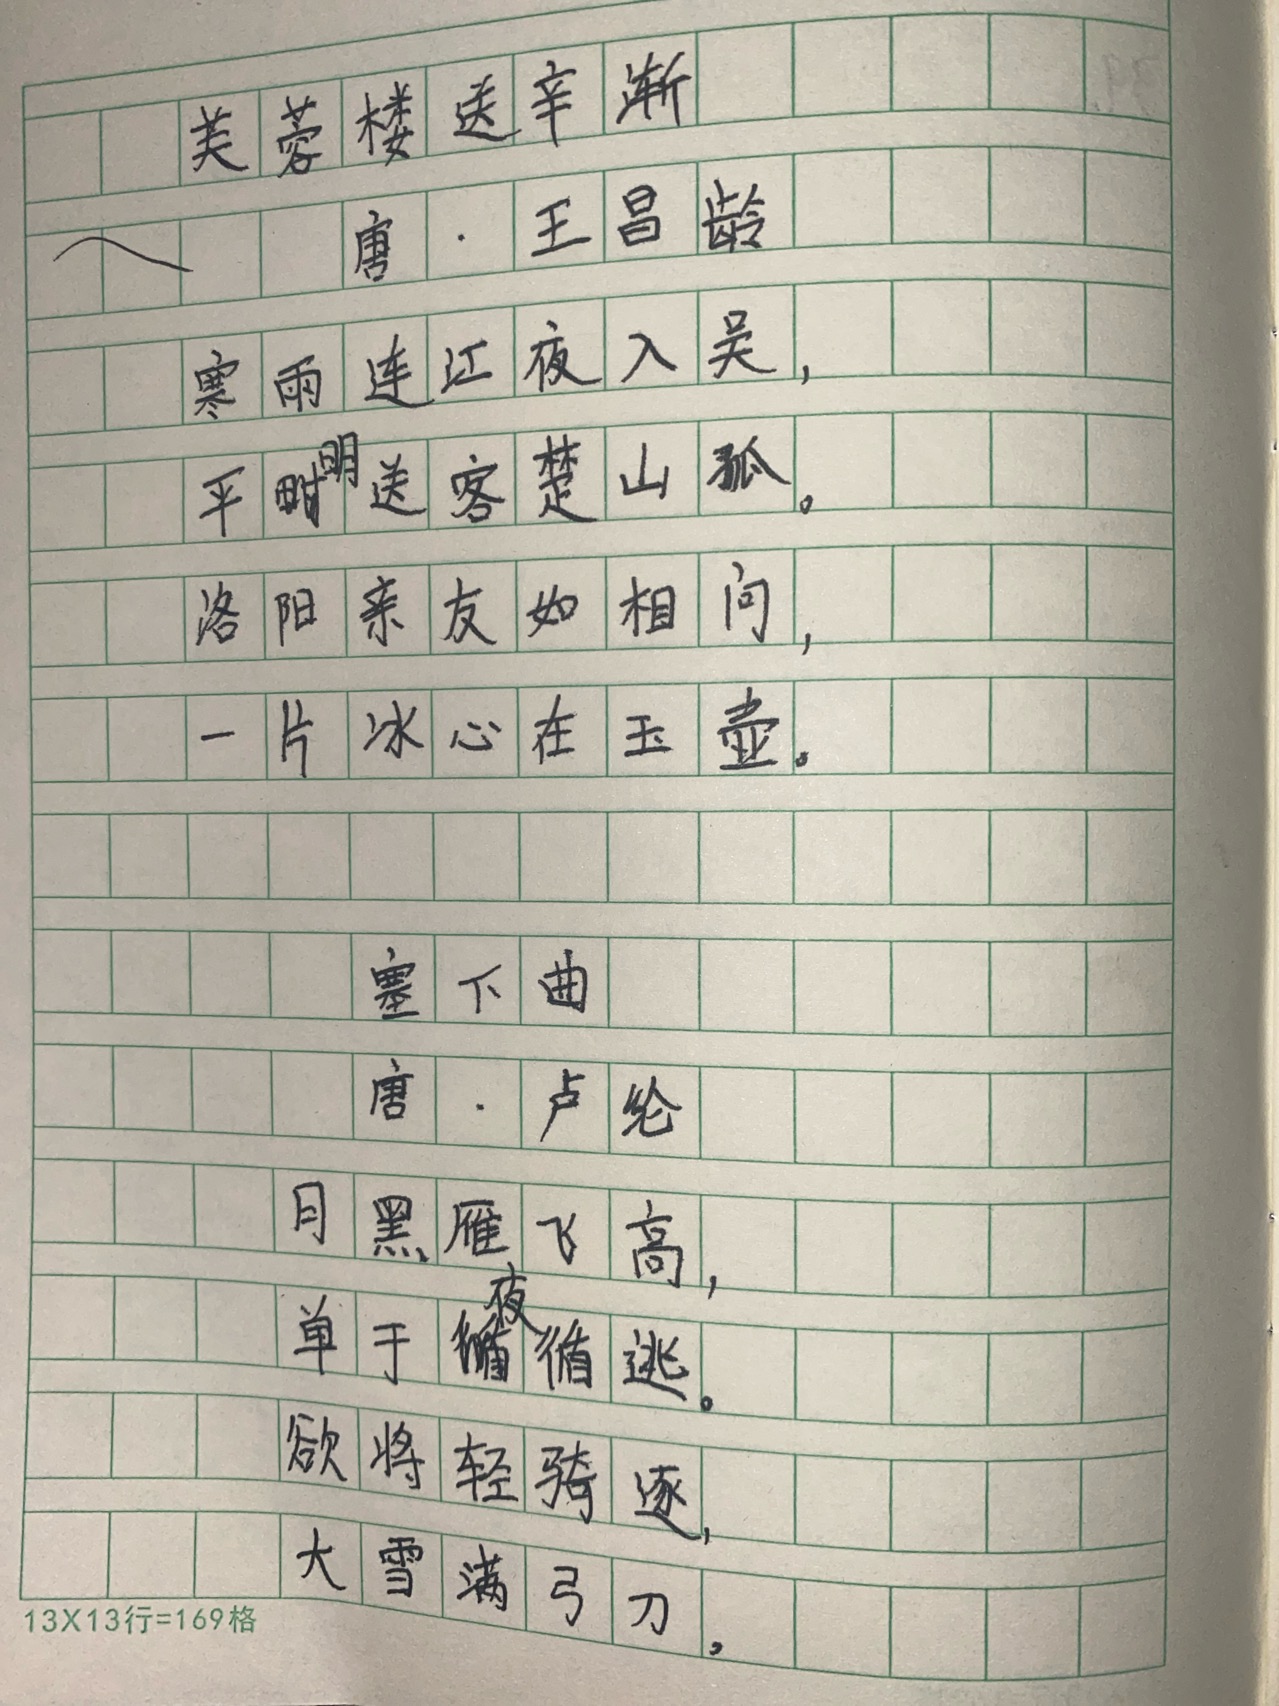 芙蓉楼送辛渐
唐·王昌龄
寒雨连江夜入吴，
平明送客楚山孤。
洛阳亲友如相问，
一片冰心在玉壶。
塞下曲
唐·卢纶
月黑雁飞高，
单于夜循逃。
欲将轻骑逐，
大雪满弓刀，
13X13行=169格